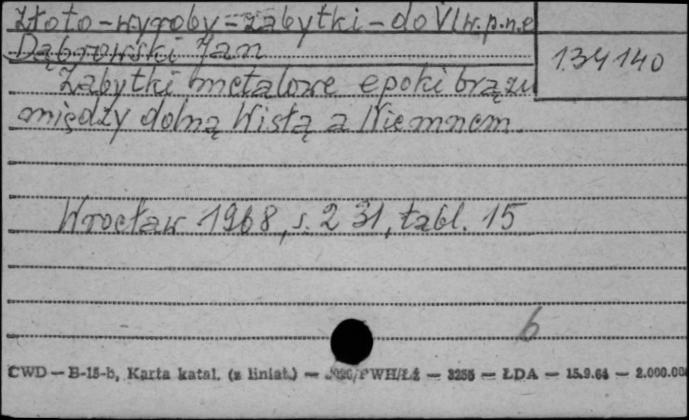 Złoto - wyroby - zabytki - do VI w. p.n.e
Dąbrowski Jan
134140
Zabytki metalowe epoki brązu
między dolną Wisłą a Niemnem.
Wrocław 1968, s. 231, tabl. 15
6
CWD — B-15-b, Karta katal. (z liniat.) — /PWH/Łź — 3255 — ŁDA — 15.9.64 — 2.000.000